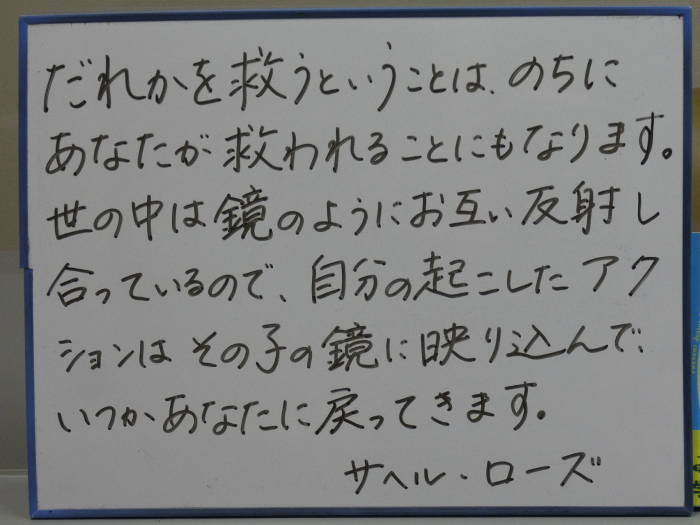 だれかを救うということは、のちに
あなたが救われることにもなります。
世の中は鏡のようにお互い反射し
合っているので、自分の起こしたアク
ションはその子の鏡に映り込んで、
いつかあなたに戻ってきます。
サヘル・ローズ